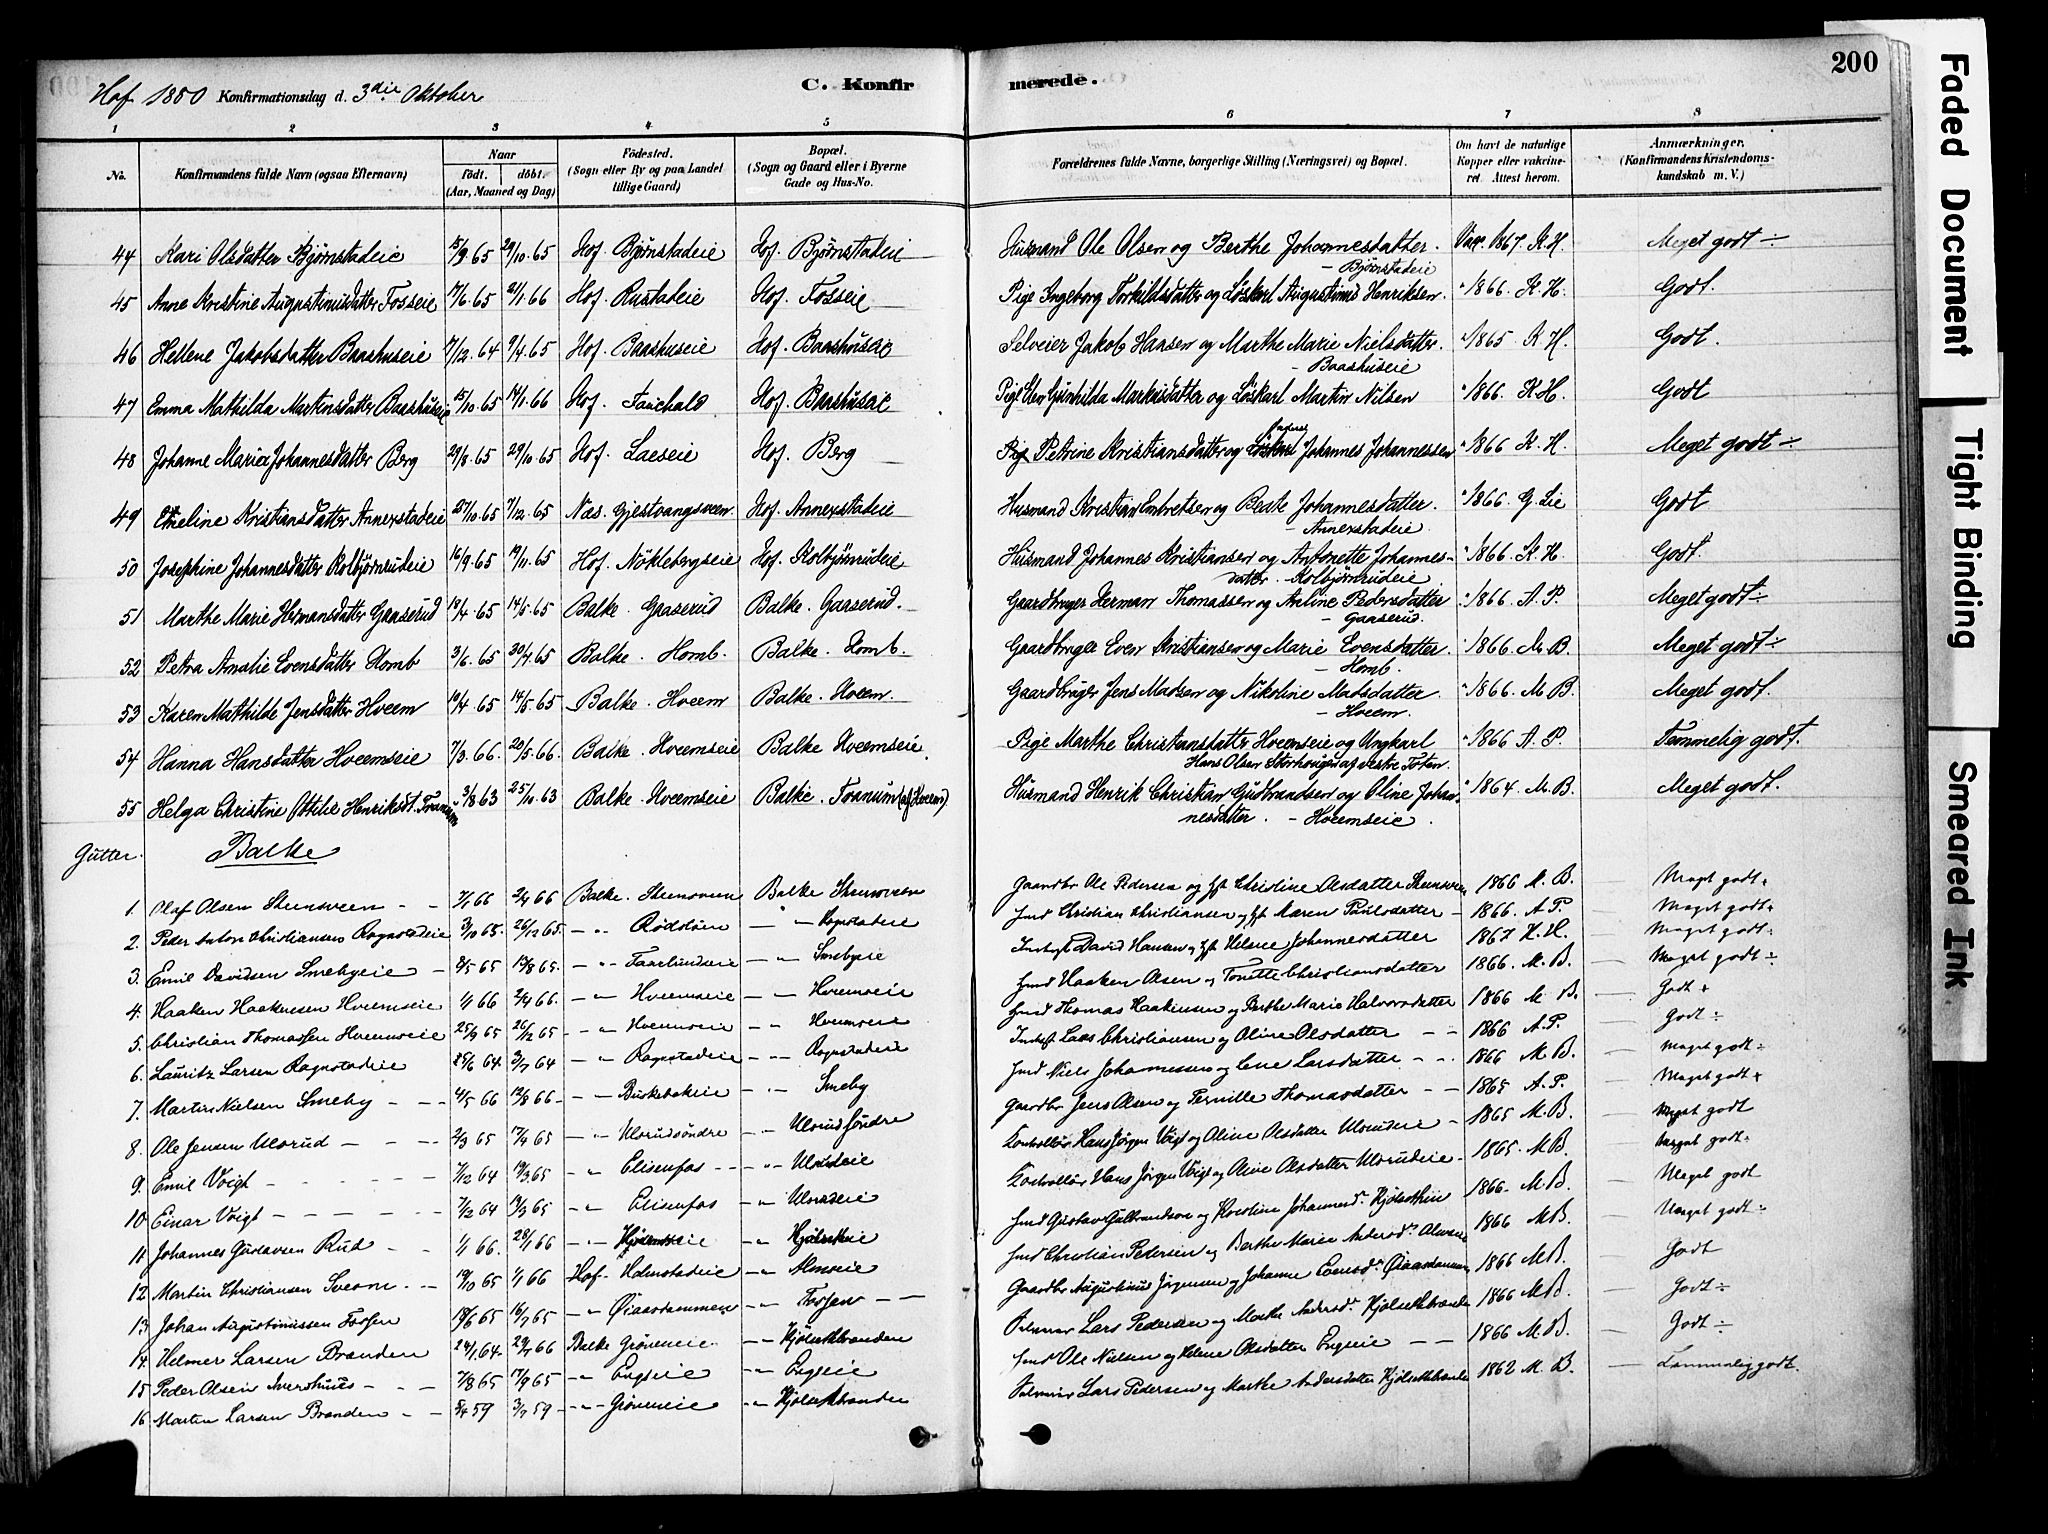 Hof 1880 Konfirmationsdag d. 3die Oktober
C. Konfirmerede.
200
1 2 3 4 5 6 7 8
No.
Konfirmandens fulde Navn (ogsaa Efternavn)
Naar födt. döbt. (Aar, Maaned og Dag)
Födested. (Sogn eller By og paa Landet tillige Gaard)
Bopæl. (Sogn og Gaard eller i Byerne Gade og Hus-No.
Forældrenes fulde Navne, borgerlige Stilling (Næringsvei) og Bopæl.
Om havt de naturlige Kopper eller vakcineret. Attest herom.
Anmærkninger. (Konfirmandens Kristendomskundskab m. V.)
44 Kari Olsdatter Bjørnstadeie 15/9.65 29/10.65 Hof. Bjørnstadeie Hof. Bjørnstadeie Husmand Ole Olsen og Berthe Johannesdatter. Vax. 1867. K.H. Meget godt ÷
- Bjørnstadeie
45 Anne Kristine Augustinusdatter Fosseie 17/6.65 21/1.66 Hof. Rustadeie Hof. Fosseie Pige Ingeborg Torkildsdatter og Løskarl Augustinus Henriksen. " 1866. K.H. Godt.
46 Hellene Jakobsdatter Baashuseie 7/12.64 9/4.65 Hof. Baashuseie Hof. Baashuseie Selveier Jakob Hansen og Marthe Marie Nielsdatter. " 1865 K.H. Godt.
- Baashuseie
47 Emma Mathilda Martinsdatter Baashuseie 15/10.65 14/1.66 Hof. Hof. Baashuseie Pige Gunhilda Markusdatter og Løskarl Martin Nilsen " 1866. K.H. Godt
48 Johanne Maria Johannesdatter Berg 29/8.65 29/10.65 Hof. Laeseie Hof. Berg Petrine Kristiansdatter og Johannes Johannessen " 1866 K.H. Meget godt ÷
49 Eveline Kristiansdatter Annexstadeie 25/10.65 7/12.65 Næs. Gjestvangsveen Hof. Annexstadeie Husmand Kristian Embretsen og Beate Johannesdatter. " 1866. G. Lie Godt
- Annexstadeie
50 Josephine Johannesdatter Kolbjørnrudeie 16/9.65 19/11.65 Hof. Nøklebergseie Hof. Kolbjørnrudeie Husmand Johannes Kristiansen og Antonette Johannes- " 1866. K.H. Godt.
datter. - Kolbjørnrudeie
51 Marthe Marie Hermansdatter Gaaserud 18/4.65 14/5.65 Balke. Gaaserud Balke. Gaaserud. Gaardbruger Herman Thomassen og Anline Pedersdatter " 1866. A.P. Meget godt ÷
- Gaaserud.
52 Petra Amalie Evensdatter Homb 3/6.65 30/7.65 Balke. Homb. Balke. Homb. Gaardbruger Even Kristiansen og Marie Evensdatter. " 1866. M.B. Meget godt ÷
- Homb.
53 Karen Mathilde Jensdatter Hveem 10/4.65 14/5.65 Balke. Hveem Balke. Hveem. Gaardbruger Jens Madsen og Nikoline Madsdatter " 1866. M.B. Meget godt.
- Hveem.
54 Hanna Hansdatter Hveemseie 7/3.66. 20/5.66. Balke. Hveemseie Balke Hveemseie. Pige Marthe Christiansdatter Hveemseie og Ungkarl " 1866. A.P. Temmelig godt.
Hans Olsen af vestre Toten.
55 Helga Christine Ottilie Henriksdt. Tranum 3/8 63 25/10.63 Balke. Hveemseie Balke. Tranum (af Hveem) Husmand Henrik Christian Gudbrandsen og Oline Johan- " 1864. M.B. Meget godt.
nesdatter. - Hveemseie.
Gutter. Balke
1. Olaf Olsen Steensveen 7/1 66 2/4 66 Balke. Steensveen Balke Steensveen Gaardbr Ole Pedersen og Christine Olsdatter Steensveen 1866 M.B. Meget godt
2. Peder Anton Christiansen Rognstadeie 3/10 65. 26/12 65. Rognstadeie Christian Christiansen Maren Paulsdatter 1866. A.P. Meget godt
3. Emil Davidsen Smebyeie 8/5 65 13/8 65. Taarlundseie Smebyeie David Hansen Helene Johannesdatter 1867 K.H. Meget godt
4. Haaken Haakensen Hveemseie 1/1 66 2/4 66. Hveemseie Hveemseie Haaken Olsen og Tonette Christiansdatter 1866. M.B. Meget godt ÷
5. Christian Thomassen Hveemseie 25/9 65 26/12 65 Hveemseie Hveemseie Thomas Haakensen og Berthe Marie Halvorsdatter 1866 M.B. Godt
6. Lauritz Larsen Rognstadeie 25/6 64 3/7 64 Rognstadeie Rognstadeie Lars Christiansen og Oline Olsdatter 1866 A.P. Godt ÷
7. Martin Nielsen Smeby 4/5 66 12/8 66 Smeby Niels Johannessen og Lene Larsdatter 1866 M.B. Meget godt
8. Ole Jensen Ulsrud 2/3 65 17/4 65 Ulsrudsöndre Ulsrud söndre Gaardbr Jens Olsen og Pernille Thomasdatter 1865 A.P. Meget godt
9. Emil Voigt 7/12 64 19/3 65 Elisenfos Ulsrudeie Kontrollör Hans Jörgen Voigt og Oline Olsdatter Ulsrudeie 1865 M.B. Meget godt
10 Einar Voigt 7/12 64 19/3 65 Elisenfos Ulsrudeie Kontrollör Hans Jörgen Voigt og Oline Olsdatter Ulsrudeie 1865. M.B. Meget godt
11 Johannes Gustavsen Rud 1/1 66. 28/1 66 Gustav Gulbrandsen og Karoline 1866. M.B. Meget godt
12 Martin Christiansen Sveom 19/10 65 1/1 66 Hof. Holmstadeie Almseie Christian Pedersen og Berthe Marie 1866 M.B. Meget godt
13 Johan Augustinussen Fossen 18/6 65 16/7 65 Øiaasdammen Fossen Gaardbr Augustinus Jørgensen og Johanne Øiaasdammen 1866 M.B. Godt
14 Helmer Larsen Branden 24/1 64 Balke Gröneneie Kjölsethbranden Lars Pedersen og Marthe Kjölsethbranden 1866 M.B. Godt ÷
15 Peder Olsen Svershuus 7/8 65 17/9 65 Engeie Engeie Ole Nielsen og Helene Olsdatter Engeie 1866 M.B. Godt ÷
16 Martin Larsen Branden 5/4 59 3/7 59 Gröneneie Kjölsethbranden Lars Pedersen og Marthe Andersdatter Kjölsethbranden 1862 M.B. Temmelig godt.
Faded Document
Tight Binding
Smeared Ink